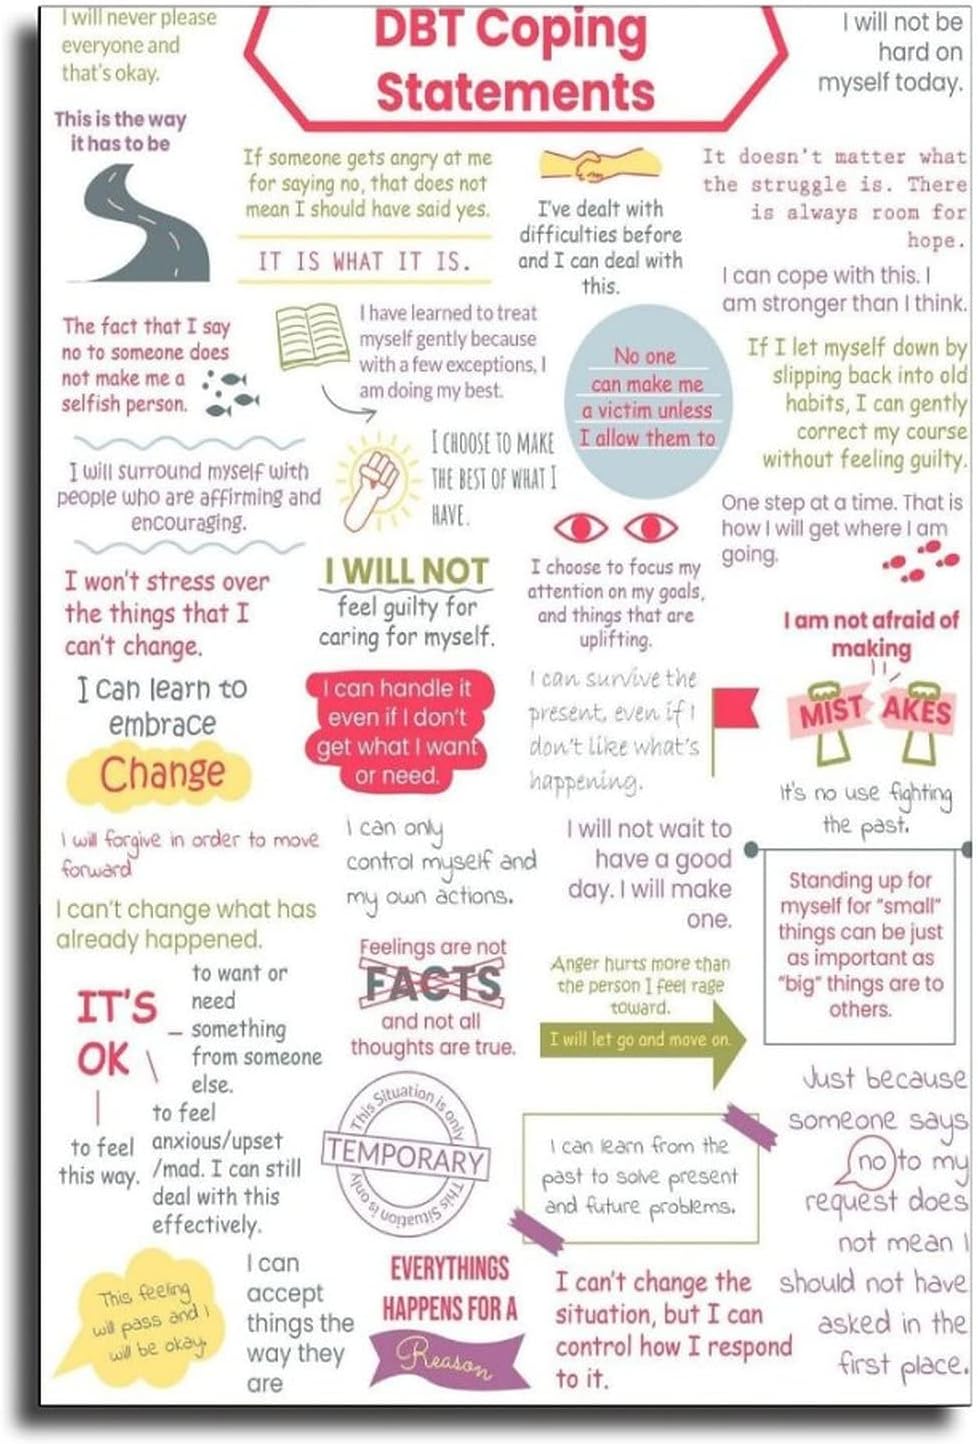 I will never please
everyone and
that's okay.
DBT Coping
Statements
I will not be
hard on
myself today.
This is the way
it has to be
If someone gets angry at me
for saying no, that does not
mean I should have said yes.
IT IS WHAT IT IS.
I've dealt with
difficulties before
and I can deal with
this.
It doesn't matter what
the struggle is. There
is always room for
hope.
I can cope with this. I
am stronger than I think.
The fact that I say
no to someone does
not make me a
selfish person.
I have learned to treat
myself gently because
with a few exceptions, I
am doing my best.
No one
can make me
a victim unless
I allow them to
If I let myself down by
slipping back into old
habits, I can gently
correct my course
without feeling guilty.
I will surround myself with
people who are affirming and
encouraging.
I CHOOSE TO MAKE
THE BEST OF WHAT I
HAVE.
One step at a time. That is
how I will get where I am
going.
I won't stress over
the things that I
can't change.
I WILL NOT
feel guilty for
caring for myself.
I choose to focus my
attention on my goals,
and things that are
uplifting.
I am not afraid of
making
MIST AKES
I can learn to
embrace
Change
I can handle it
even if I don't
get what I want
or need.
I can survive the
present, even if I
don't like what's
happening.
It's no use fighting
the past.
I will forgive in order to move
forward
I can only
control myself and
my own actions.
I will not wait to
have a good
day. I will make
one.
Standing up for
myself for "small"
things can be just
as important as
"big" things are to
others.
I can't change what has
already happened.
Feelings are not
FACTS
and not all
thoughts are true.
Anger hurts more than
the person I feel rage
toward.
I will let go and move on.
IT'S
OK
to want or
need
something
from someone
else.
to feel
this way.
to feel
anxious/upset
/mad. I can still
deal with this
effectively.
This Situation is only
TEMPORARY
This Situation is only
I can learn from the
past to solve present
and future problems.
Just because
someone says
no to my
request does
not mean I
should not have
asked in the
first place.
This feeling
will pass and I
will be okay.
I can
accept
things the
way they
are
EVERYTHINGS
HAPPENS FOR A
Reason
I can't change the
situation, but I can
control how I respond
to it.